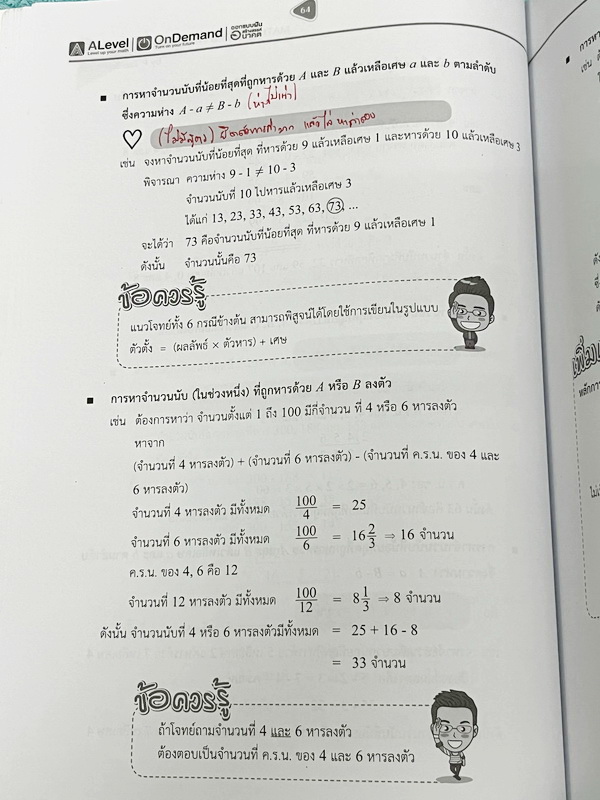 64
ALevel
Level up your math
OnDemand
Turn on your future
ออกแบบฝัน
สร้างสรรค์
อนาคต
■ การหาจำนวนนับที่น้อยที่สุดที่ถูกหารด้วย A และ B แล้วเหลือเศษ a และ b ตามลำดับ
ซึ่งความห่าง A - a ≠ B - b (ห่างไม่เท่า)
(ไม่มีสูตร)
เช่น จงหาจำนวนนับที่น้อยที่สุด ที่หารด้วย 9 แล้วเหลือเศษ 1 และหารด้วย 10 แล้วเหลือเศษ 3
พิจารณา ความห่าง 9 - 1 ≠ 10 - 3
จำนวนนับที่ 10 ไปหารแล้วเหลือเศษ 3
ได้แก่ 13, 23, 33, 43, 53, 63, 73, ...
จะได้ว่า 73 คือจำนวนนับที่น้อยที่สุด ที่หารด้วย 9 แล้วเหลือเศษ 1
ดังนั้น จำนวนนั้นคือ 73
ข้อควรรู้
แนวโจทย์ทั้ง 6 กรณีข้างต้น สามารถพิสูจน์ได้โดยใช้การเขียนในรูปแบบ
ตัวตั้ง = (ผลลัพธ์ × ตัวหาร) + เศษ
■ การหาจำนวนนับ (ในช่วงหนึ่ง) ที่ถูกหารด้วย A หรือ B ลงตัว
เช่น ต้องการหาว่า จำนวนตั้งแต่ 1 ถึง 100 มีกี่จำนวน ที่ 4 หรือ 6 หารลงตัว
หาจาก
(จำนวนที่ 4 หารลงตัว) + (จำนวนที่ 6 หารลงตัว) - (จำนวนที่ ค.ร.น. ของ 4 และ
6 หารลงตัว)
จำนวนที่ 4 หารลงตัว มีทั้งหมด 100/4 = 25
จำนวนที่ 6 หารลงตัว มีทั้งหมด 100/6 = 16 2/3 ⇒ 16 จำนวน
ค.ร.น. ของ 4, 6 คือ 12
จำนวนที่ 12 หารลงตัว มีทั้งหมด 100/12 = 8 1/3 ⇒ 8 จำนวน
ดังนั้น จำนวนนับที่ 4 หรือ 6 หารลงตัวมีทั้งหมด = 25 + 16 - 8
= 33 จำนวน
ข้อควรรู้
ถ้าโจทย์ถามจำนวนที่ 4 และ 6 หารลงตัว
ต้องตอบเป็นจำนวนที่ ค.ร.น. ของ 4 และ 6 หารลงตัว